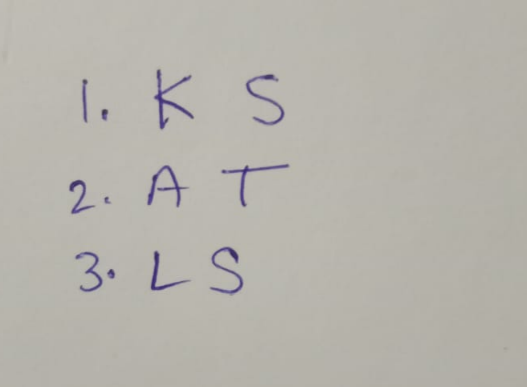 1. K S
2. A T
3. L S